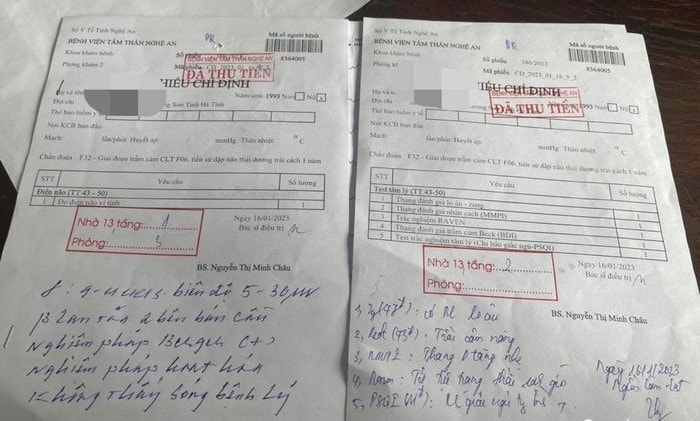 Sở Y Tế Tỉnh Nghệ An
BỆNH VIỆN TÂM THẦN NGHỆ AN
Khoa khám bệnh
Phòng khám 2
Mã số người bệnh
8364005
Số phiếu
Mã phiếu CD_2023_01_16
BỆNH VIỆN TÂM THẦN NGHỆ AN
ĐÃ THU TIỀN
HIẾU CHỈ ĐỊNH
Họ và tên
Năm sinh 1993 Nam Nữ x
Địa chỉ
Sơn Tỉnh Hà Tĩnh
Thẻ bảo hiểm y
Nơi KCB ban đầu
Mạch: lần/phút Huyết áp: mmHg Thân nhiệt: °C
Chẩn đoán F32 - Giai đoạn trầm cảm CLT F06, tiền sử dập não thái dương trái cách 1 năm
STT Yêu cầu Số lượng
Điện não (TT 43 - 50)
1 Đo điện não vi tính 1
Nhà 13 tầng: 1
Phòng: 3
Ngày 16/01/2023
Bác sĩ điều trị
BS. Nguyễn Thị Minh Châu
biên độ 5-30µV
β lan tỏa 2 bên bán cầu
Nghiệm pháp Berger (+)
Nghiệm pháp hoạt hóa
Không thấy sóng bệnh lý
Sở Y Tế Tỉnh Nghệ An
BỆNH VIỆN TÂM THẦN NGHỆ AN
Khoa khám bệnh
Phòng khám
Mã số người bệnh
8364005
Số phiếu 380/2023
Mã phiếu CD_2023_01_16_8_2
IẾU CHỈ ĐỊNH
BỆNH VIỆN TÂM THẦN NGHỆ AN
ĐÃ THU TIỀN
Họ và
1993 Nam Nữ x
Địa chỉ
Thẻ bảo hiểm y tế
Nơi KCB ban đầu
Mạch: lần/phút Huyết áp: mmHg Thân nhiệt: °C
Chẩn đoán F32 - Giai đoạn trầm cảm CLT F06, tiền sử dập não thái dương trái cách 1 năm
STT Yêu cầu Số lượng
Test tâm lý (TT 43-50)
1 Thang đánh giá lo âu - zung 1
2 Thang đánh giá nhân cách (MMPI) 1
3 Trắc nghiệm RAVEN 1
4 Thang đánh giá trầm cảm Beck (BDI) 1
5 Test trắc nghiệm tâm lý (Chỉ báo giấc ngủ-PSQI) 1
Nhà 13 tầng: 2
Phòng:
Ngày 16/01/2023
Bác sĩ điều trị
BS. Nguyễn Thị Minh Châu
có RL lo âu
Trầm cảm nặng
Thang
Ngày 16/1/2023